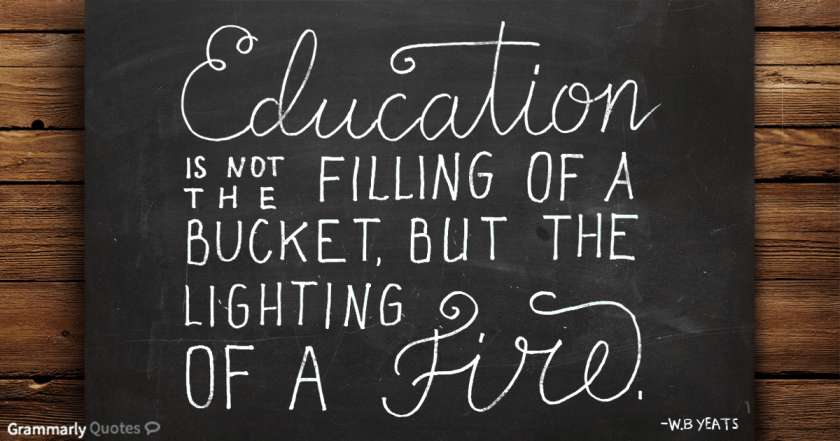 Education
IS NOT
THE
FILLING OF A
BUCKET, BUT THE
LIGHTING
OF A Fire.
-W.B YEATS
Grammarly Quotes